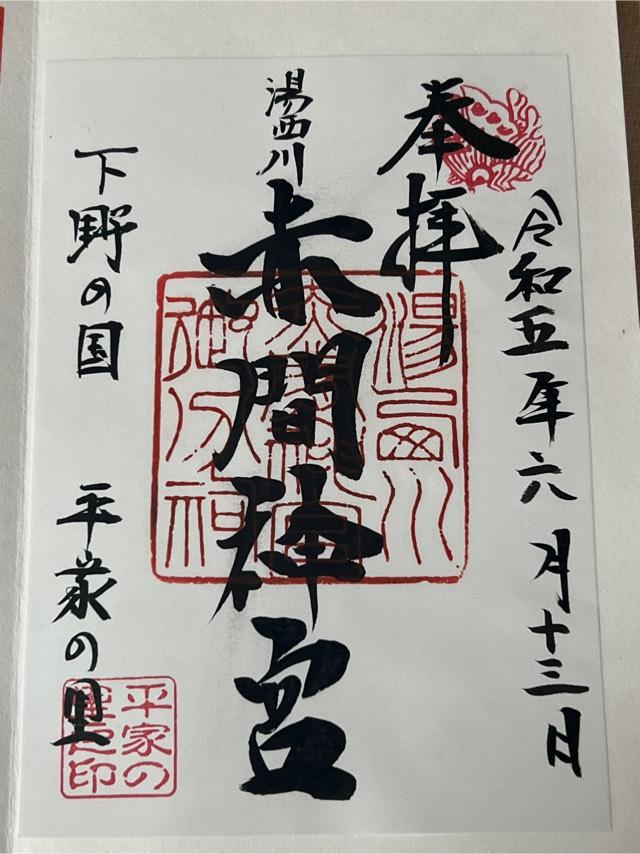 奉拝
令和五年六月十三日
湯西川
赤間神宮
下野の国
平家の里
湯西川
赤間神宮
御分祠
平家の
里之印